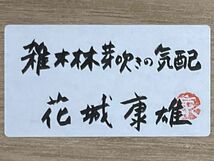 雑木林芽吹きの気配
花城康雄